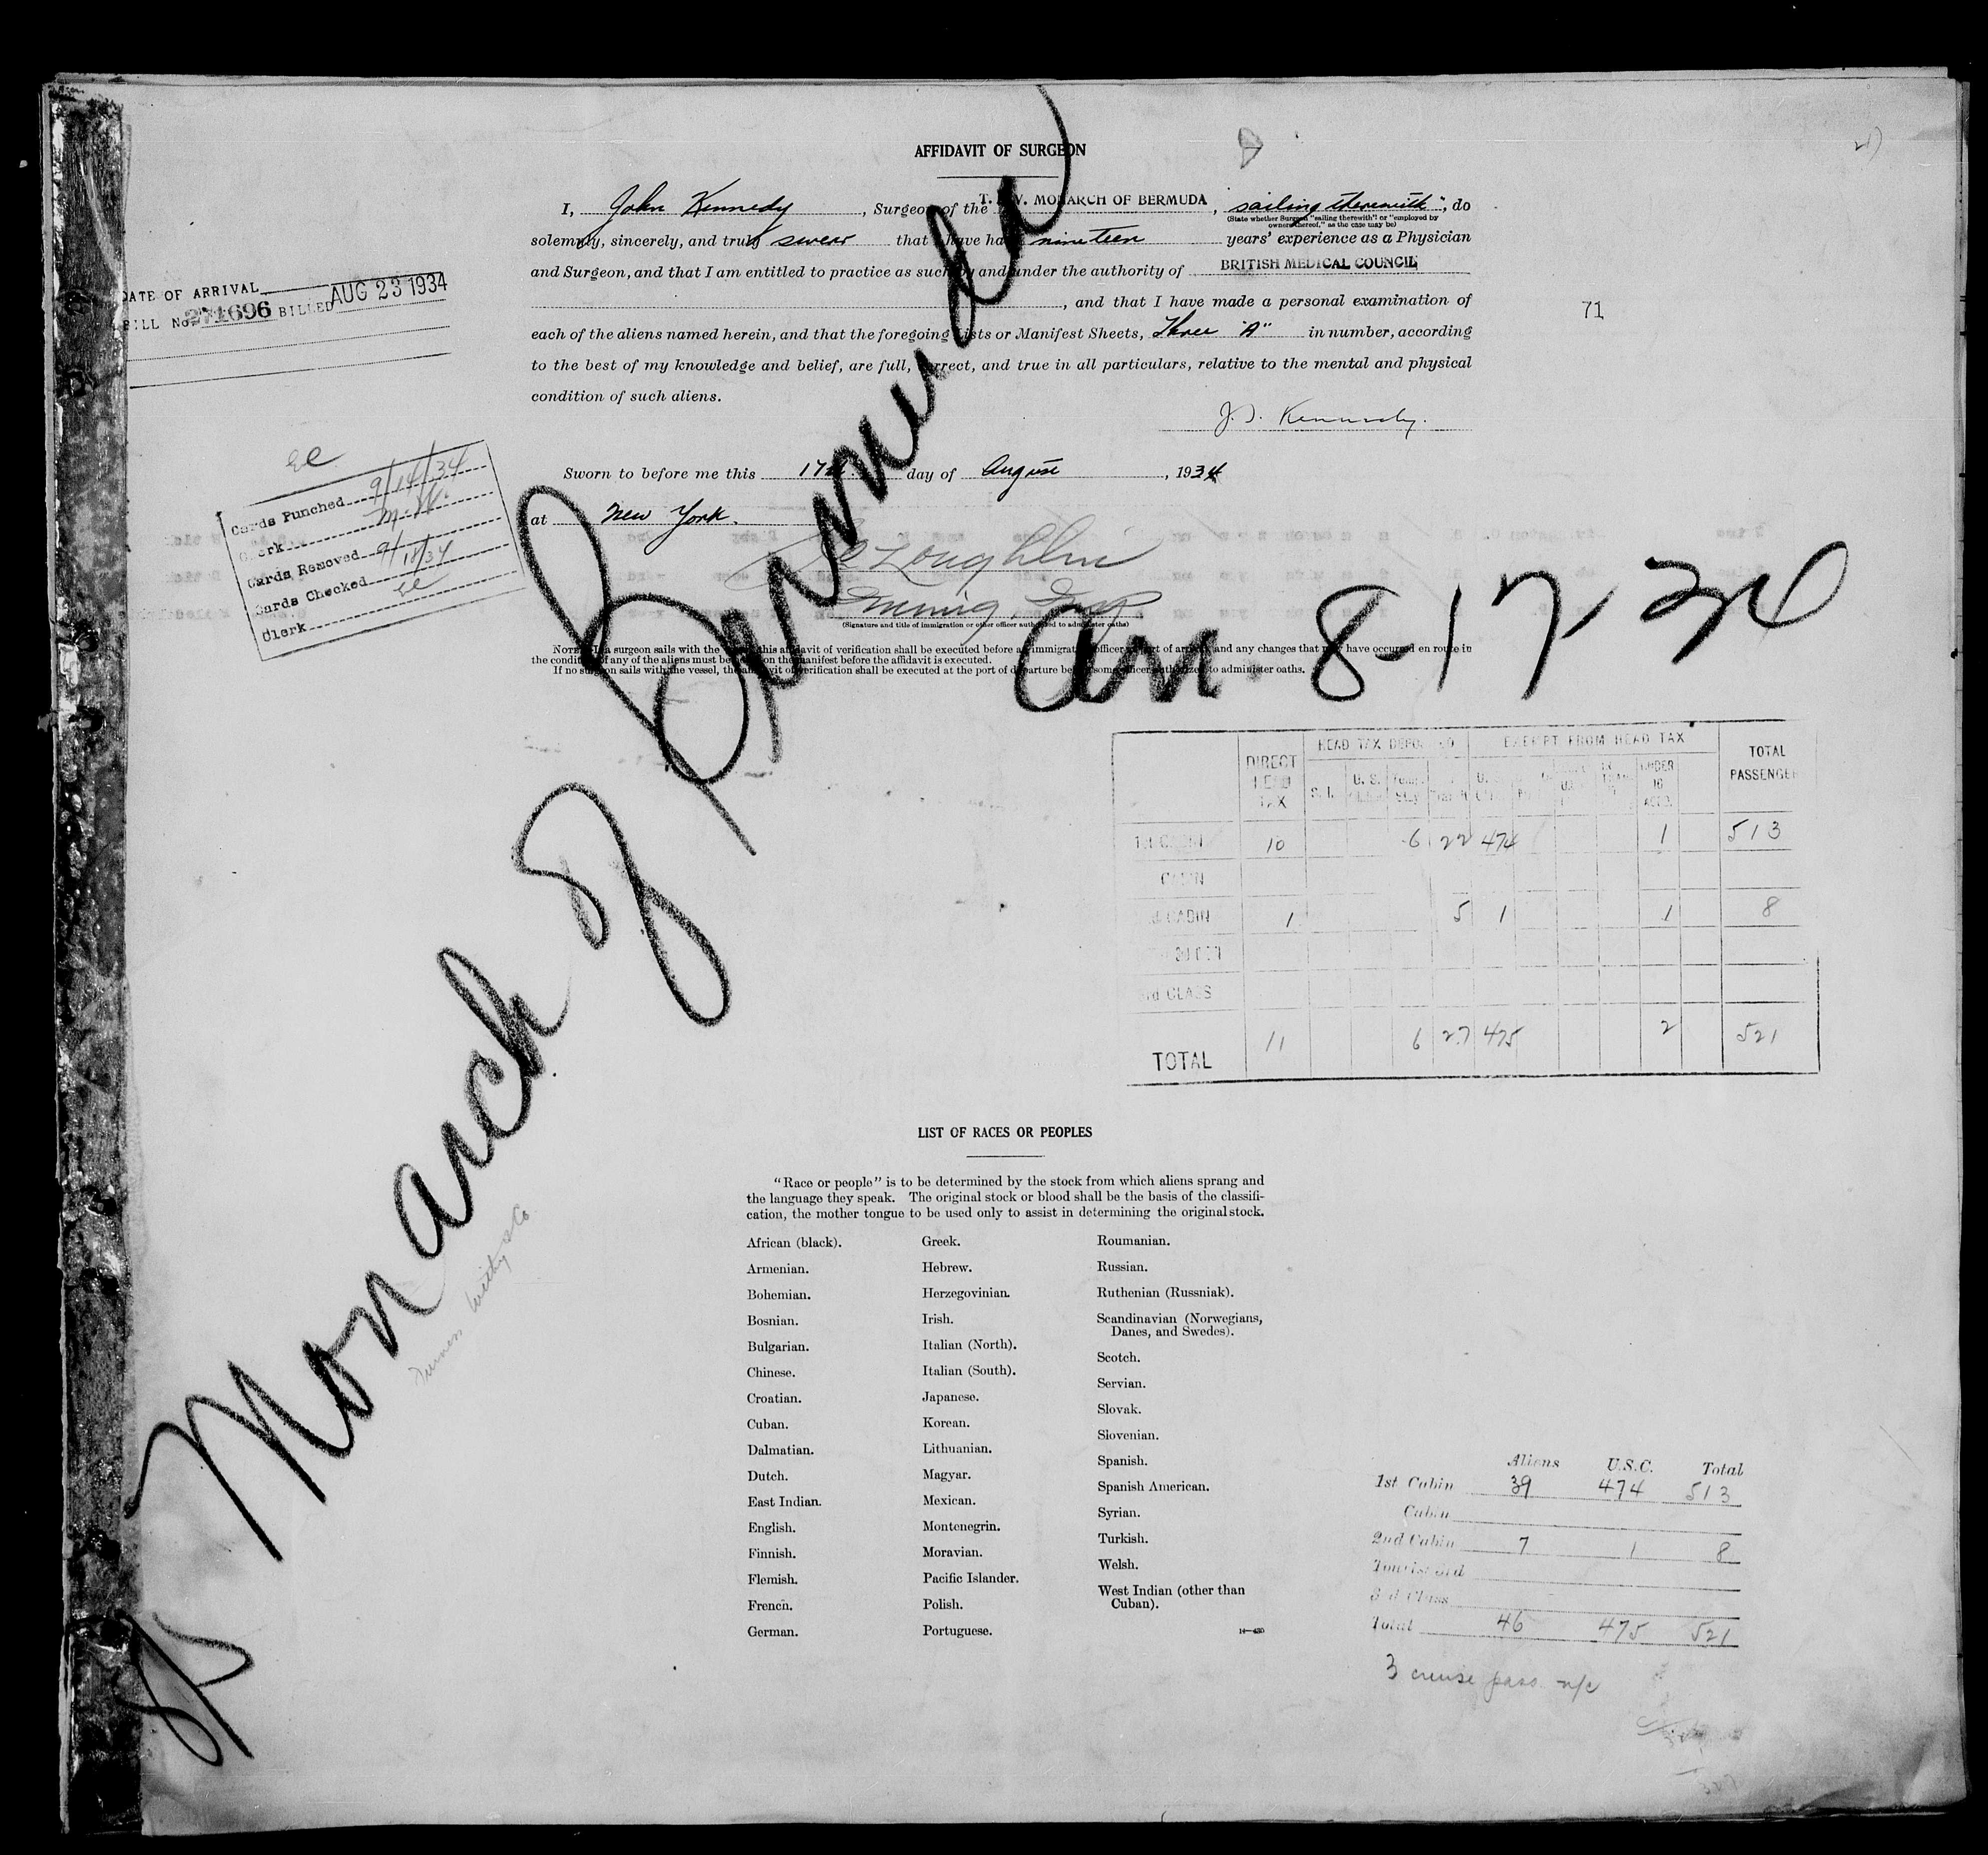 AFFIDAVIT OF SURGEON
I, John Kennedy, Surgeon of the T. E. V. MONARCH OF BERMUDA, "sailing therewith", do
(State whether Surgeon "sailing therewith" or "employed by
owners thereof," as the case may be)
solemnly, sincerely, and truly swear that I have had nineteen years' experience as a Physician
and Surgeon, and that I am entitled to practice as such by and under the authority of BRITISH MEDICAL COUNCIL
, and that I have made a personal examination of
each of the aliens named herein, and that the foregoing Lists or Manifest Sheets, Three "A" in number, according
to the best of my knowledge and belief, are full, correct, and true in all particulars, relative to the mental and physical
condition of such aliens.
Kennedy.
Sworn to before me this 17th day of August, 1934
at New York.
(Signature and title of immigration or other officer authorized to administer oaths)
NOTE.—If a surgeon sails with the vessel, this affidavit of verification shall be executed before an immigration officer at port of arrival and any changes that may have occurred en route in
the condition of any of the aliens must be noted on the manifest before the affidavit is executed.
If no surgeon sails with the vessel, the affidavit of verification shall be executed at the port of departure before some officer authorized to administer oaths.
DATE OF ARRIVAL
BILL No. 271696 BILLED AUG 23 1934
71
Cards Punched 9/14/34
Clerk
Cards Removed 9/18/34
Cards Checked
Clerk
SS Monarch of Bermuda
Furness Withy & Co
Arr. 8-17-34
DIRECT HEAD TAX
HEAD TAX DEPOSITED
EXEMPT FROM HEAD TAX
TOTAL PASSENGERS
S.I.
U. S.
UNDER 16 ACCD.
1st CABIN 10 6 22 474 1 513
CABIN
2d CABIN 1 5 1 1 8
3rd CLASS
TOTAL 11 6 27 475 2 521
LIST OF RACES OR PEOPLES
"Race or people" is to be determined by the stock from which aliens sprang and
the language they speak. The original stock or blood shall be the basis of the classifi-
cation, the mother tongue to be used only to assist in determining the original stock.
African (black).
Armenian.
Bohemian.
Bosnian.
Bulgarian.
Chinese.
Croatian.
Cuban.
Dalmatian.
Dutch.
East Indian.
English.
Finnish.
Flemish.
French.
German.
Greek.
Hebrew.
Herzegovinian.
Irish.
Italian (North).
Italian (South).
Japanese.
Korean.
Lithuanian.
Magyar.
Mexican.
Montenegrin.
Moravian.
Pacific Islander.
Polish.
Portuguese.
Roumanian.
Russian.
Ruthenian (Russniak).
Scandinavian (Norwegians,
Danes, and Swedes).
Scotch.
Servian.
Slovak.
Slovenian.
Spanish.
Spanish American.
Syrian.
Turkish.
Welsh.
West Indian (other than
Cuban).
Aliens U.S.C. Total
1st Cabin 39 474 513
Cabin
2nd Cabin 7 1 8
Tourist 3rd
3rd Class
Total 46 475 521
3 cruise pass n/c